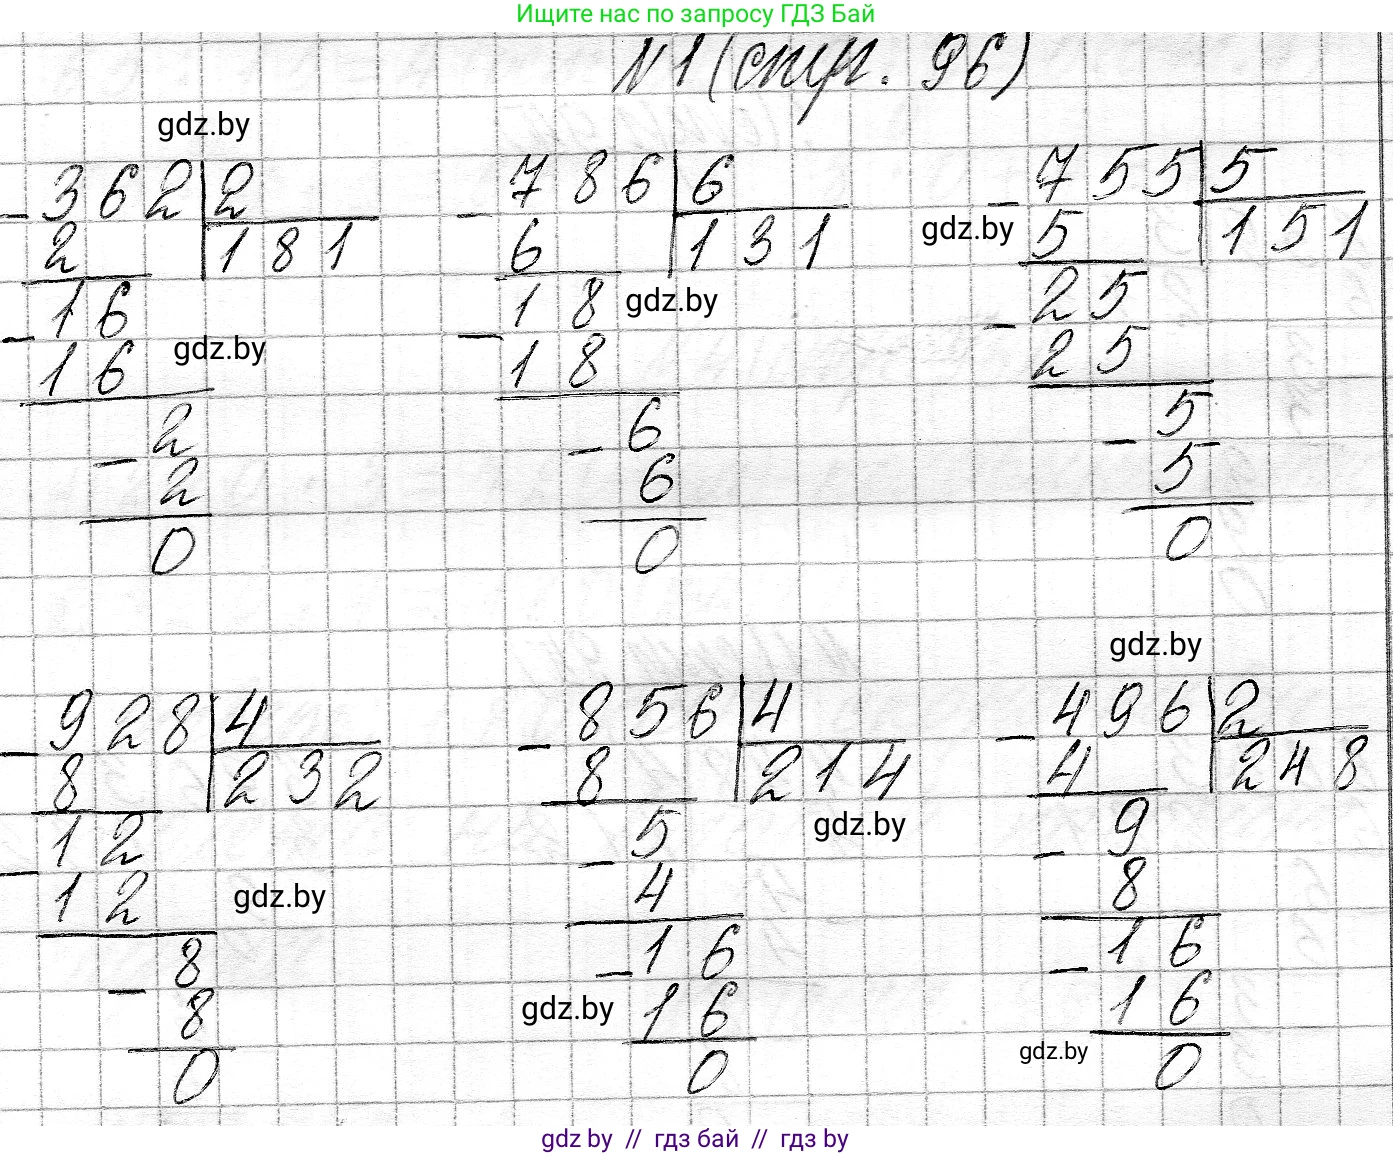 Ищите нас по запросу ГДЗ Бай
№1 (стр. 96)
gdz.by
362 2
- 2 181
16
- 16
gdz.by
2
- 2
0
786 6
- 6 131
18
gdz.by
- 18
6
- 6
0
755 5
gdz.by
- 5 151
25
- 25
5
- 5
0
928 4
- 8 232
12
- 12
gdz.by
8
- 8
0
856 4
- 8 214
gdz.by
5
- 4
16
- 16
gdz.by
0
gdz.by
496 2
- 4 248
9
- 8
16
- 16
gdz.by
0
gdz by // гдз бай // гдз by